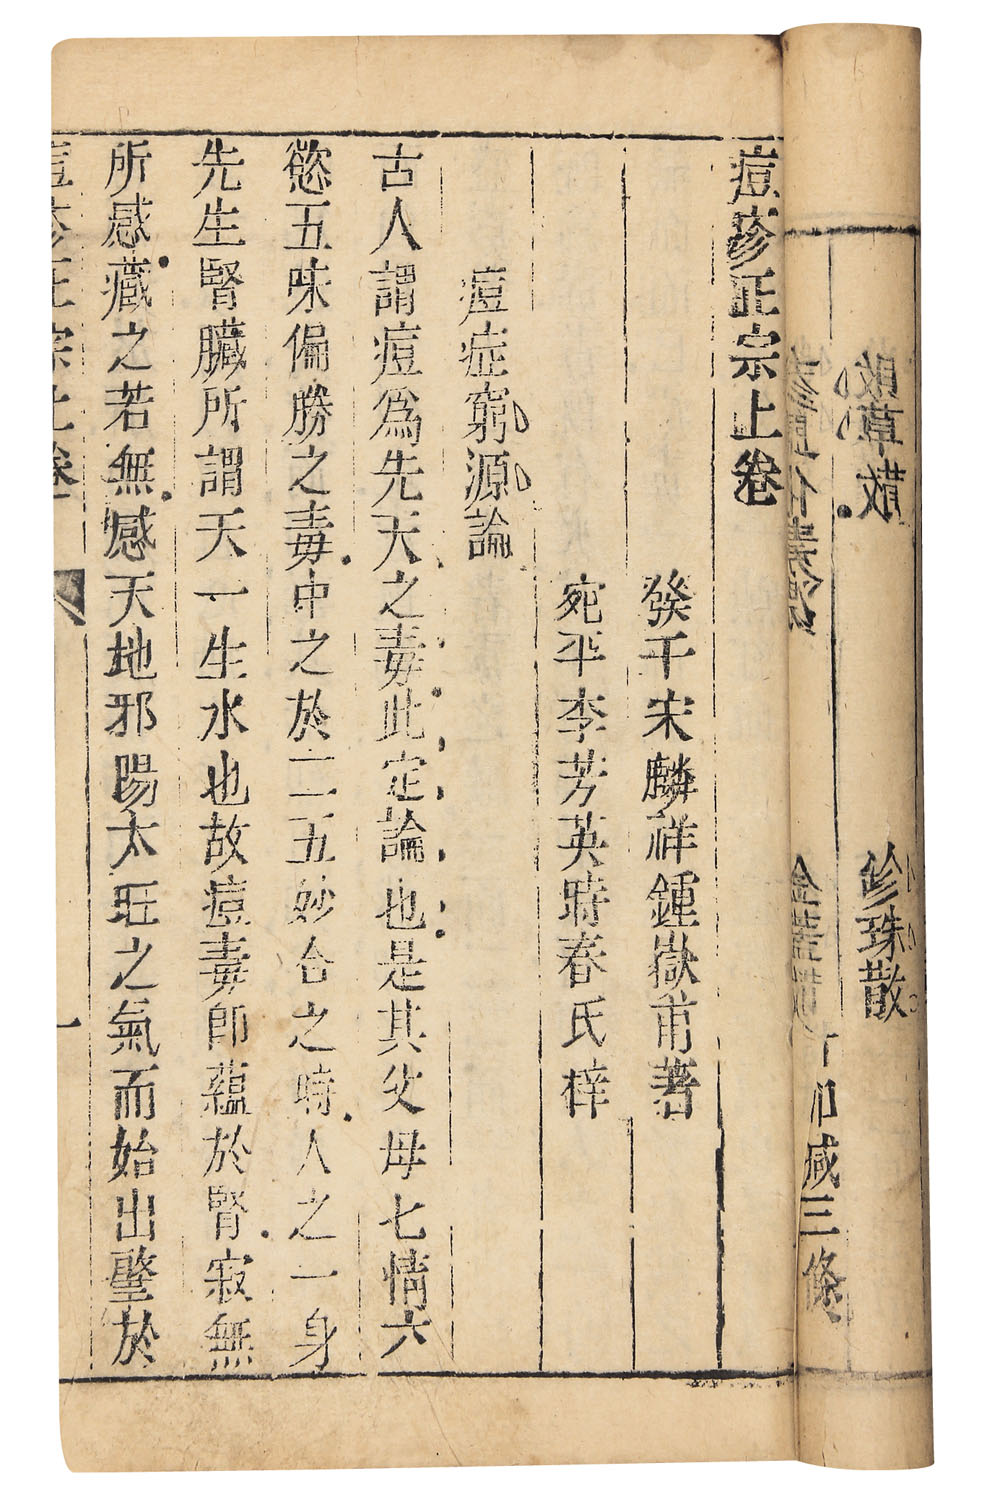 敗草散
珍珠散
減三條
痘疹正宗上卷
癸干宋麟祥鍾嶽甫著
宛平李芳英時春氏梓
痘症窮源論
古人謂痘爲先天之毒此定論也是其父母七情六
慾五味偏勝之毒中之於二五妙合之時人之一身
先生腎臟所謂天一生水也故痘毒卽蘊於腎寂無
所感藏之若無感天地邪陽太旺之氣而始出壑於
痘疹正宗上卷
一